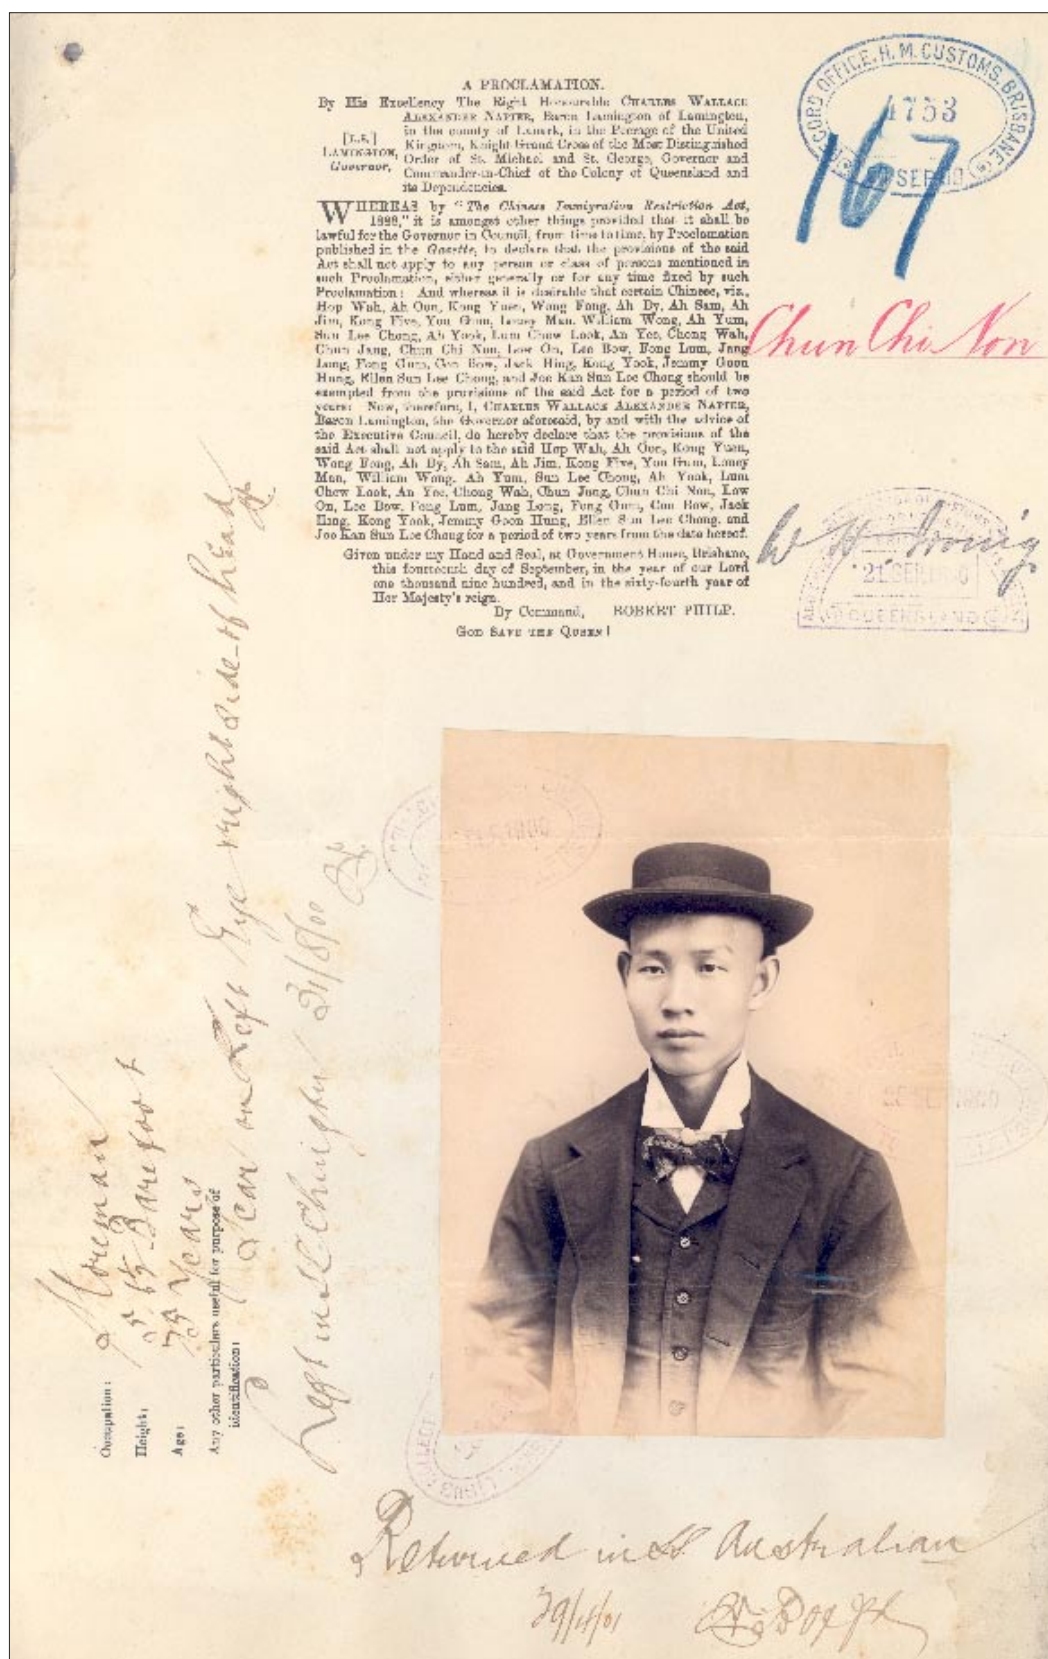 A PROCLAMATION.
By His Excellency The Right Honourable CHARLES WALLACE
ALEXANDER NAPIER, Baron Lamington of Lamington,
in the county of Lanark, in the Peerage of the United
[L.S.] Kingdom, Knight Grand Cross of the Most Distinguished
LAMINGTON, Order of St. Michael and St. George, Governor and
Governor, Commander-in-Chief of the Colony of Queensland and
its Dependencies.
WHEREAS by "The Chinese Immigration Restriction Act,
1888," it is amongst other things provided that it shall be
lawful for the Governor in Council, from time to time, by Proclamation
published in the Gazette, to declare that the provisions of the said
Act shall not apply to any person or class of persons mentioned in
such Proclamation, either generally or for any time fixed by such
Proclamation: And whereas it is desirable that certain Chinese, viz.,
Hop Wah, Ah Oon, Kong Yuen, Wong Fong, Ah Dy, Ah Sam, Ah
Jim, Kong Five, You Gum, Loney Man, William Wong, Ah Yum,
Sun Lee Chong, Ah Yook, Lum Chow Look, An Yee, Chong Wah,
Chun Jang, Chun Chi Non, Low On, Lee Bow, Fong Lum, Jang
Long, Fong Gum, Coo Bow, Jack Hing, Kong Yook, Jemmy Goon
Hung, Ellen Sun Lee Chong, and Joe Kan Sun Lee Chong should be
exempted from the provisions of the said Act for a period of two
years: Now, therefore, I, CHARLES WALLACE ALEXANDER NAPIER,
Baron Lamington, the Governor aforesaid, by and with the advice of
the Executive Council, do hereby declare that the provisions of the
said Act shall not apply to the said Hop Wah, Ah Oon, Kong Yuen,
Wong Fong, Ah Dy, Ah Sam, Ah Jim, Kong Five, You Gum, Loney
Man, William Wong, Ah Yum, Sun Lee Chong, Ah Yook, Lum
Chow Look, An Yee, Chong Wah, Chun Jang, Chun Chi Non, Low
On, Lee Bow, Fong Lum, Jang Long, Fong Gum, Coo Bow, Jack
Hing, Kong Yook, Jemmy Goon Hung, Ellen Sun Lee Chong, and
Joe Kan Sun Lee Chong for a period of two years from the date hereof.
Given under my Hand and Seal, at Government House, Brisbane,
this fourteenth day of September, in the year of our Lord
one thousand nine hundred, and in the sixty-fourth year of
Her Majesty's reign.
By Command, ROBERT PHILP.
GOD SAVE THE QUEEN!
RECORD OFFICE, H. M. CUSTOMS, BRISBANE
4753
SEP
167
Chun Chi Non
W H Irving
21 SEP 1900
QUEENSLAND
Occupation: Storeman
Height: Barefoot
Age: Years
Any other particulars useful for purpose of
identification: Scar on Left Eye right side of head
Left in SS Chingtu 31/8/00
Returned in SS Australian
29/4/01